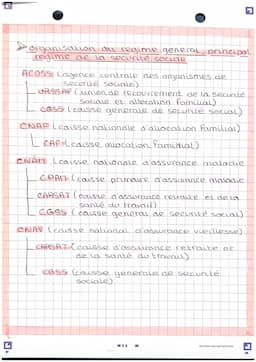 organisation du régime général, principal
régime de la sécurité sociale
ACOSS (agence centrale des organismes de
sécurité sociale)
URSSAF (union de recouvrement de la sécurité
sociale et allocation familial)
CGSS (caisse générale de sécurité social)
CNAF (caisse nationale d'allocation familial)
CAF (caisse allocation familial)
CNAM (caisse nationale d'assurance maladie
CPAM (caisse primaire d'assurance maladie
CARSAT (caisse d'assurance retraite et de la
santé du travail)
CGSS (caisse général de sécurité social)
CNAV (caisse national d'assurance vieillesse)
CARSAT (caisse d'assurance retraite et
de la santé du travail)
CGSS (caisse générale de sécurité
sociale)